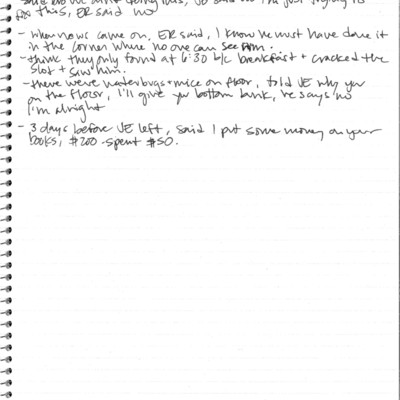 for this, ER said no
- when news came on, ER said, I know he must have done it
in the corner where no one can see him.
- think they only found at 6:30 b/c breakfast + cracked the
slot + saw him.
- there were waterbugs + mice on floor, told JE why you
on the floor, I'll give you bottom bunk, he says no
I'm alright
- 3 days before JE left, said I put some money on your
books, $200 - spent $50.